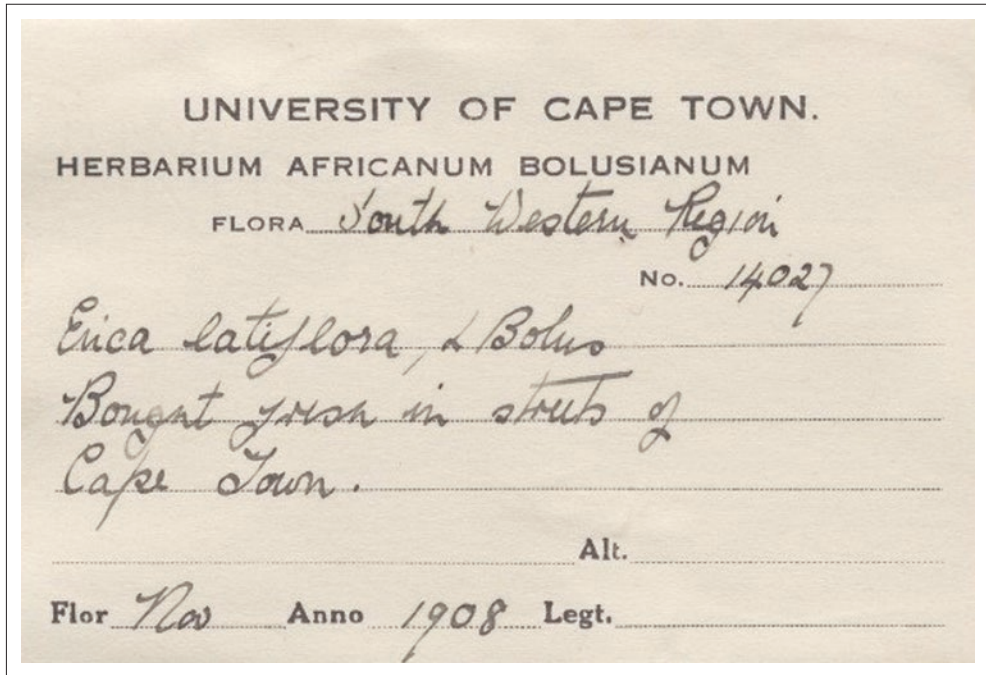 UNIVERSITY OF CAPE TOWN.
HERBARIUM AFRICANUM BOLUSIANUM
FLORA South Western Region
No. 14027
Erica latiflora, L Bolus
Bought fresh in streets of
Cape Town.
Alt.
Flor Nov Anno 1908 Legt.